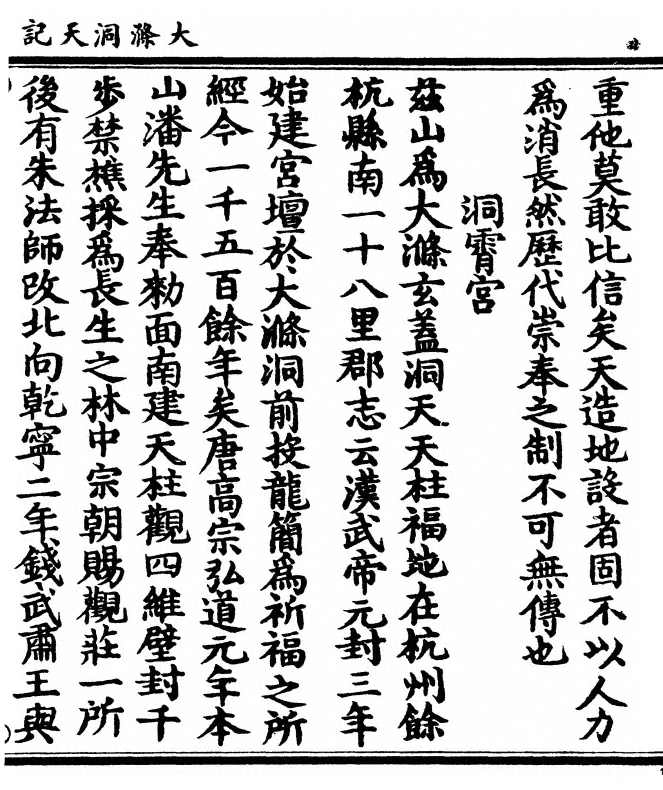 大滌洞天記
重他莫敢比信矣天造地設者固不以人力
爲消長然歷代崇奉之制不可無傳也
洞霄宮
茲山爲大滌玄蓋洞天天柱福地在杭州餘
杭縣南一十八里郡志云漢武帝元封三年
始建宮壇於大滌洞前投龍簡爲祈福之所
經今一千五百餘年矣唐高宗弘道元年本
山潘先生奉勑面南建天柱觀四維壁封千
步禁樵採爲長生之林中宗朝賜觀莊一所
後有朱法師改北向乾寧二年錢武肅王與